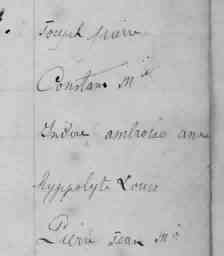 Joseph pierre
Constans M ie
Isidore ambroise ann
Hyppolyte Louis
Pierre Jean M ie